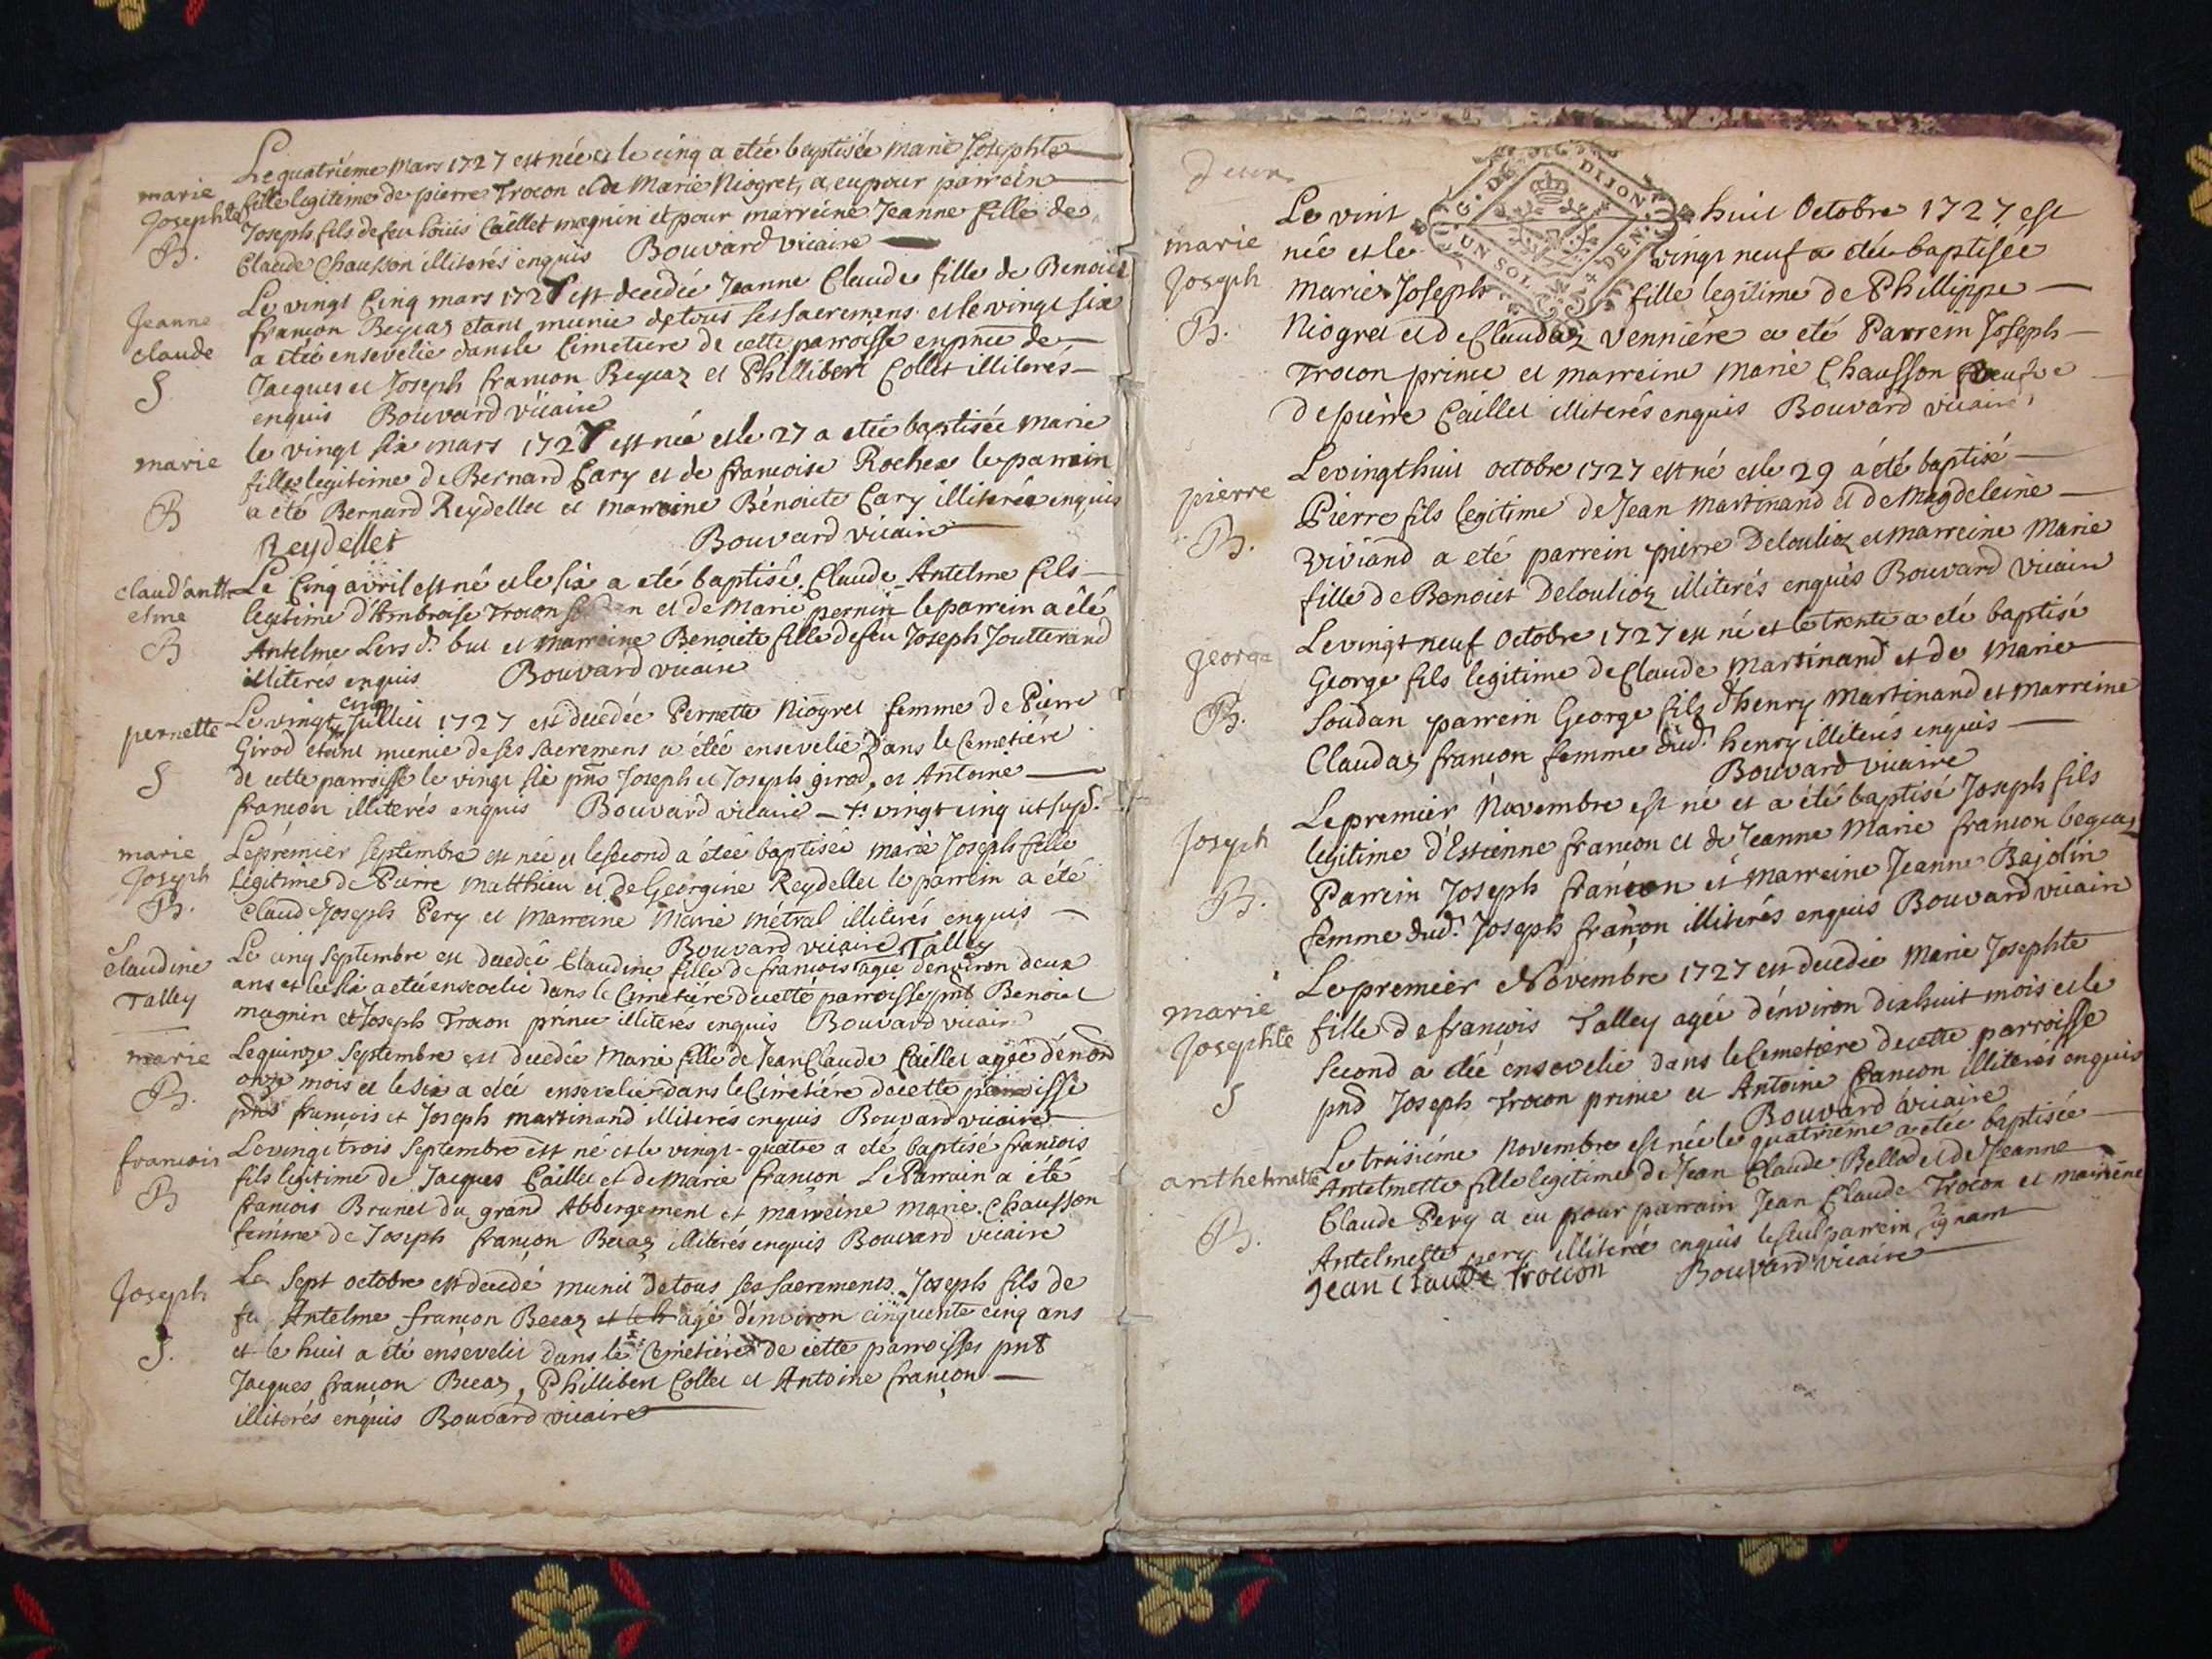 Le quatriéme Mars 1727 est née et le cinq a etée baptisée marie Josephte
marie
Josephte
B.
fille legitime de pierre Trocon et de Marie Niogret, a eu pour parrein
Joseph fils de feu Louis Caillet magnin et pour marreine Jeanne fille de
Claude Chausson illiterés enquis Bouvard vicaire
Jeanne
claude
S
Le vingt Cinq mars 1727 est decedée Jeanne Claude fille de Benoict
françon Beycaz etant munie de tous ses sacremens et le vingt six
a etée ensevelie dans le Cimetiere de cette parroisse en pnce de
Jacques et Joseph françon Beycaz et Phillibert Collet illiterés
enquis Bouvard vicaire
marie
B
le vingt six mars 1727 est née et le 27 a etée baptisée marie
fille legitime de Bernard Cary et de francoise Rochex le parrain
a été Bernard Reydellet et marreine Bénoite Cary illiterée enquis
Reydellet Bouvard vicaire
claud'anth
elme
B
Le Cinq avril est né et le six a eté baptisé Claude Antelme fils
legitime d'Ambroise Trocon et de Marie pernin le parrein a êté
Antelme Lers dt but et marreine Benoite fille de feu Joseph Joutterand
illiterés enquis Bouvard vicaire
pernette
S
cinq
Le vingt Juillet 1727 est decedée Pernette Niogret femme de Pierre
Girod etant munie de ses sacremens a étée ensevelie dans le Cemetiére
de cette parroisse le vingt six pns Joseph et Joseph girod, et Antoine
françon illiterés enquis Bouvard vicaire — +. vingt cinq ut sup.
marie
Joseph
B.
Le premiér septembre est née et le second a étée baptisée marie Joseph fille
legitime de Pierre Matthieu et de Georgine Reydellet le parrein a été
Claud Joseph Pery et marreine Marie métral illiterés enquis
Bouvard vicaire
Claudine
Talley
Talley
Le cinq septembre est decedée Claudine fille de francois agée d'environ deux
ans et le six a eté ensevelie dans le Cimetiére de cette parroisse pnt Benoict
magnin et Joseph Trocon prince illiterés enquis Bouvard vicaire
marie
B.
Le quinze septembre est decedée Marie fille de Jean Claude Caillet agée d'env̄on
onze mois et le six a etée ensevelie dans le Cimetiére de cette parroisse
pns francois et Joseph martinand illiterés enquis Bouvard vicaire
francois
B
Le vingt trois septembre est né et le vingt-quatre a eté baptisé francois
fils legitime de Jacques Caillet et de Marie françon Le Parrain a été
francois Brunet du grand Abbergement et marreine marie Chausson
femme de Joseph françon Becaz illiterés enquis Bouvard vicaire
Joseph
S.
Le sept octobre est decedé munit de tous ses sacrements Joseph fils de
fu Antelme françon Becaz et le h agé d'environ cinquente cinq ans
et le huit a été ensevelit dans le Cemetiére de cette parroisse pnt
Jacques françon Becaz, Phillibert Collet et Antoine françon
illiterés enquis Bouvard vicaire
deux
G. DE DIJON
UN SOL DEN
marie
Joseph
B.
Le vint huit Octobre 1727 est
née et le vingt neuf a etée baptisée
Marie Joseph fille legitime de Phillippe
Niogret et de Claudaz Venniére a eté Parrein Joseph
Trocon prince et marreine Marie Chausson veufve
de pierre Caillet illiterés enquis Bouvard vicaire
pierre
B.
Le vingt huit octobre 1727 est né et le 29 a été baptisé
Pierre fils legitime de Jean Martinand et de Magdeleine
Viviand a eté parrein pierre Deloulioz et marreine Marie
fille de Benoict Deloulioz illiterés enquis Bouvard vicaire
George
B.
Le vingt neuf Octobre 1727 est né et le trente a eté baptisé
George fils legitime de Claude Martinand et de Marie
Soudan parrein George fils d'henry Martinand et Marreine
Claudaz françon femme dud. henry illiterés enquis
Bouvard vicaire
Joseph
B.
Le premiér Novembre est né et a été baptisé Joseph fils
legitime d'Estienne françon et de Jeanne Marie françon becaz
Parrein Joseph françon et marreine Jeanne Bajolin
femme dud. Joseph françon illiterés enquis Bouvard vicaire
marie
Josephte
S
Le premiér Novembre 1727 est decedée Marie Josephte
fille de françois Talley agée d'environ dixhuit mois et le
second a etée ensevelie dans le Cemetiere de cette parroisse
pnd Joseph Trocon prince et Antoine françon illiterés enquis
Bouvard vicaire
anthelmette
B.
Le troisiéme Novembre est née le quatrieme a etée baptisée
Antelmette fille legitime de Jean Claude Bellod et de Jeanne
Claude Pery a eu pour parrain Jean Claude Trocon et marreine
Antelmette pery illiterée enquis le seul parrein signant
Jean Claude Trocon Bouvard vicaire